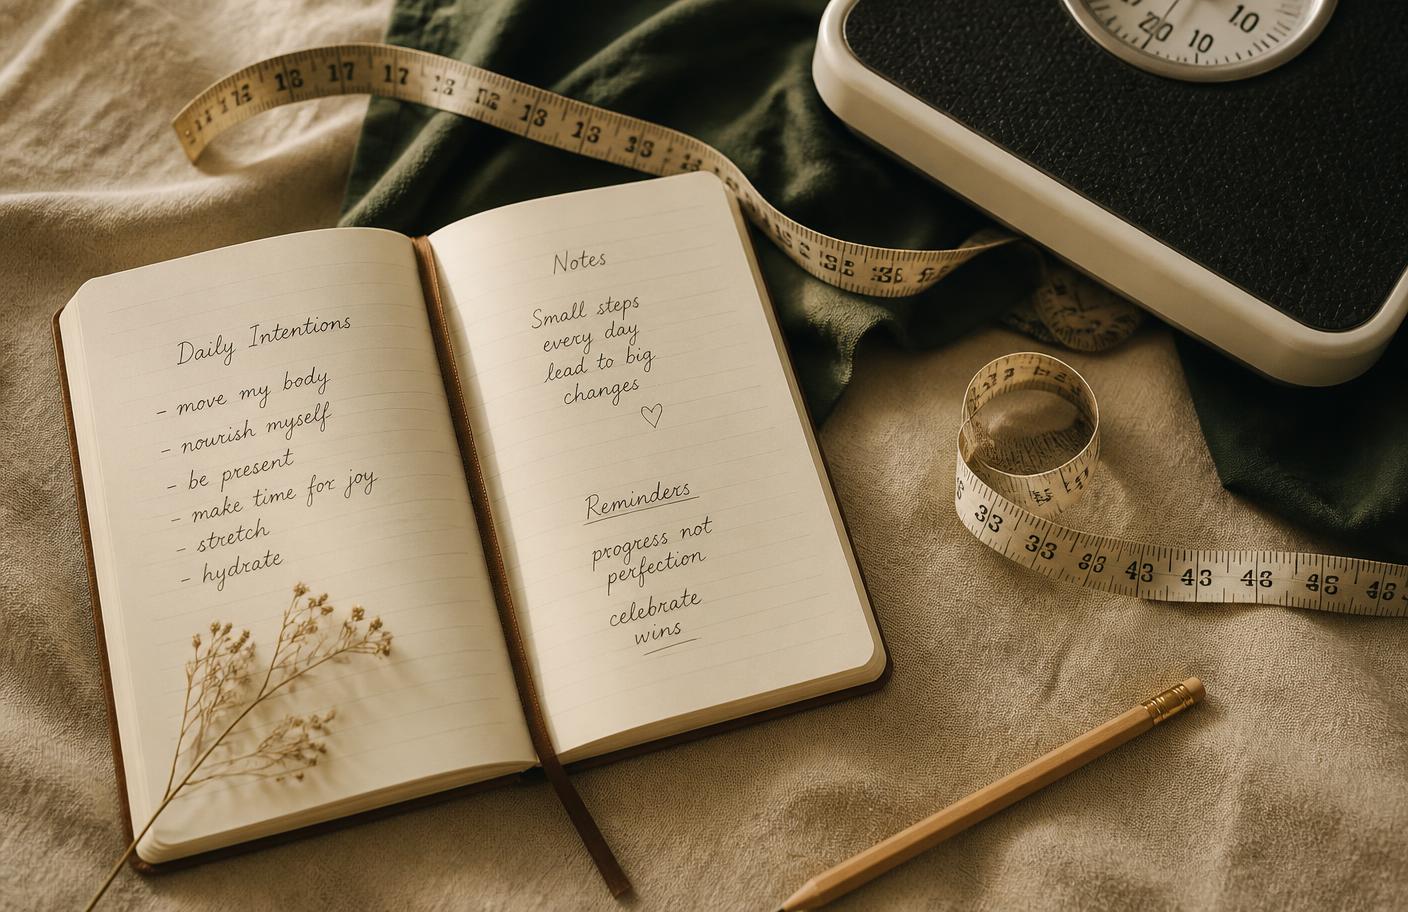 Daily Intentions
- move my body
- nourish myself
- be present
- make time for joy
- stretch
- hydrate
Notes
Small steps
every day
lead to big
changes
Reminders
progress not
perfection
celebrate
wins
17 17
13 13
33 33
43 43 48
10
10